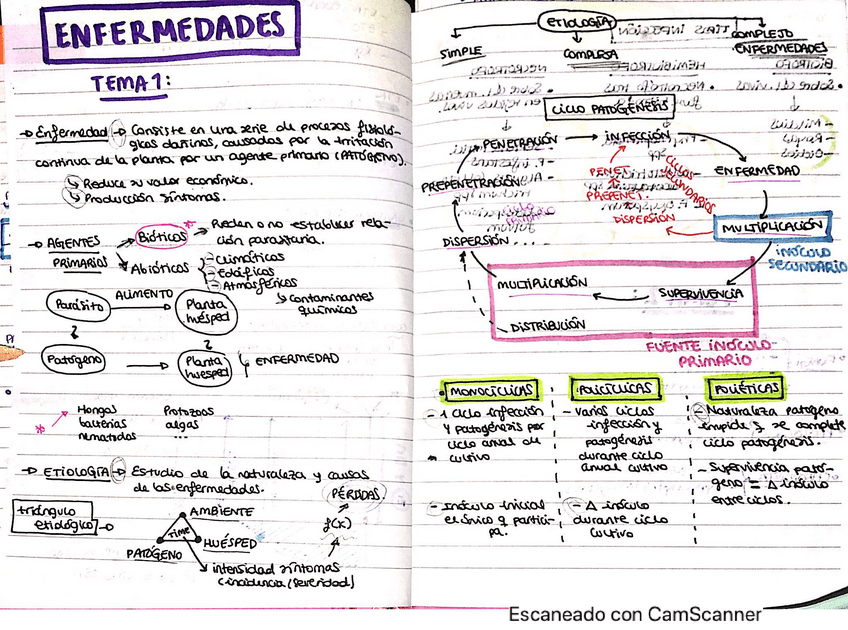 ENFERMEDADES
TEMA 1:
→ Enfermedad → Consiste en una serie de procesos fisioló-
gicos dañinos, causados por la irritación
continua de la planta por un agente primario (PATÓGENO).
↳ Reduce su valor económico.
↳ Producción síntomas.
→ AGENTES PRIMARIOS
Bióticos * → Pueden o no establecer rela-
ción parasitaria.
Abióticos
- Climáticos
- Edáficos
- Atmosféricos
↳ Contaminantes
químicos
Parásito
ALIMENTO
Planta
huésped
Patógeno
Planta
huésped
ENFERMEDAD
*
Hongos
bacterias
nematodos
Protozoos
algas
...
→ ETIOLOGÍA → Estudio de la naturaleza y causas
de las enfermedades.
triángulo
etiológico
AMBIENTE
TIME
PATÓGENO
HUÉSPED
PÉRDIDAS
f(x)
intensidad síntomas
(incidencia/severidad)
ETIOLOGÍA
SIMPLE
COMPLEJA
COMPLEJO
ENFERMEDADES
CICLO PATOGÉNESIS
PENETRACIÓN → INFECCIÓN
PREPENETRACIÓN
ENFERMEDAD
PENET.
PREPENET.
DISPERSIÓN
CICLOS
SECUNDARIOS
CICLO
PRIMARIO
DISPERSIÓN
MULTIPLICACIÓN
INÓCULO
SECUNDARIO
MULTIPLICACIÓN
SUPERVIVENCIA
DISTRIBUCIÓN
FUENTE INÓCULO
PRIMARIO
MONOCÍCLICAS
- 1 ciclo infección
y patogénesis por
ciclo anual de
cultivo
- Inóculo inicial
el único q partici-
pa.
POLICÍCLICAS
- Varios ciclos
infección y
patogénesis
durante ciclo
anual cultivo
- Δ inóculo
durante ciclo
cultivo
POLIÉTICAS
- Naturaleza patógeno
impide q se complete
ciclo patogénesis.
- Supervivencia pató-
geno = Δ inóculo
entre ciclos.
Escaneado con CamScanner